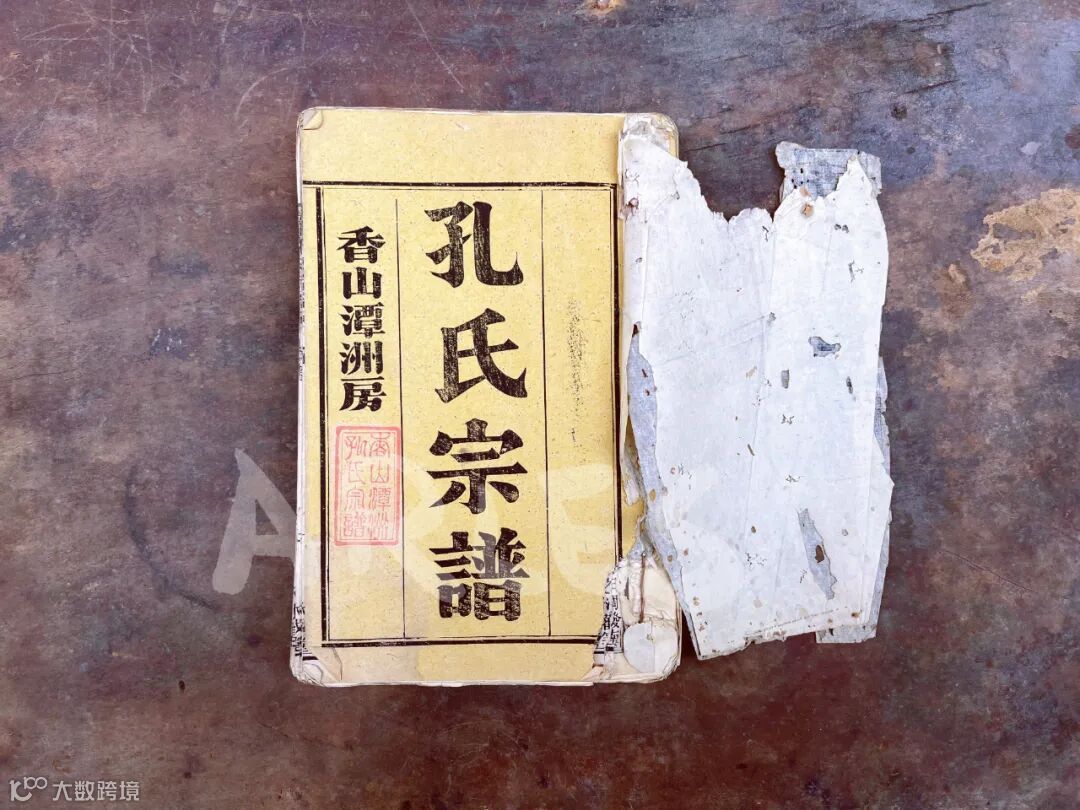 孔氏宗譜
香山潭洲房
香山潭洲
孔氏宗譜
大数跨境